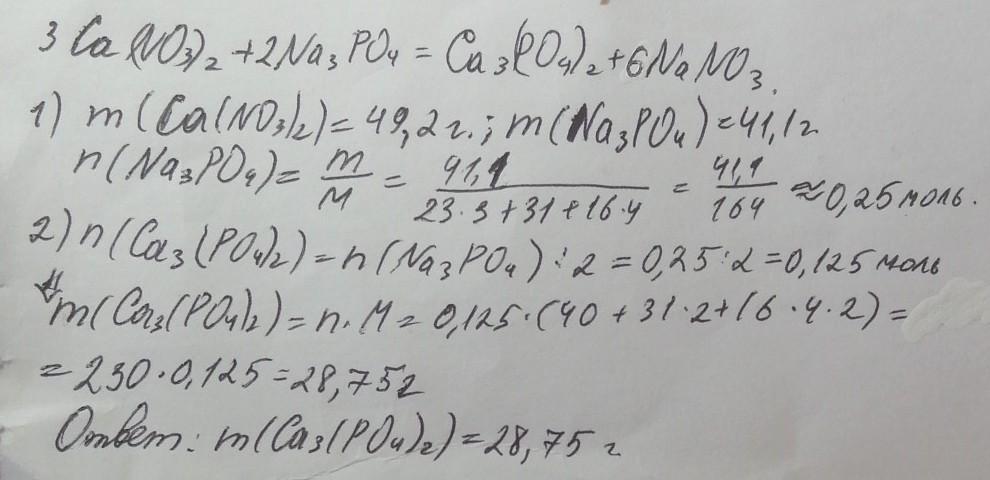 3Ca(NO3)2 + 2Na3PO4 = Ca3(PO4)2 + 6NaNO3.
1) m(Ca(NO3)2) = 49,2 г.; m(Na3PO4) = 41,1 г
n(Na3PO4) = m/M = 41,1/(23·3+31+16·4) = 41,1/164 ≈ 0,25 моль.
2) n(Ca3(PO4)2) = n(Na3PO4) : 2 = 0,25 : 2 = 0,125 моль
m(Ca3(PO4)2) = n·M = 0,125·(40 + 31·2 + 16·4·2) =
= 230·0,125 = 28,75 г
Ответ: m(Ca3(PO4)2) = 28,75 г